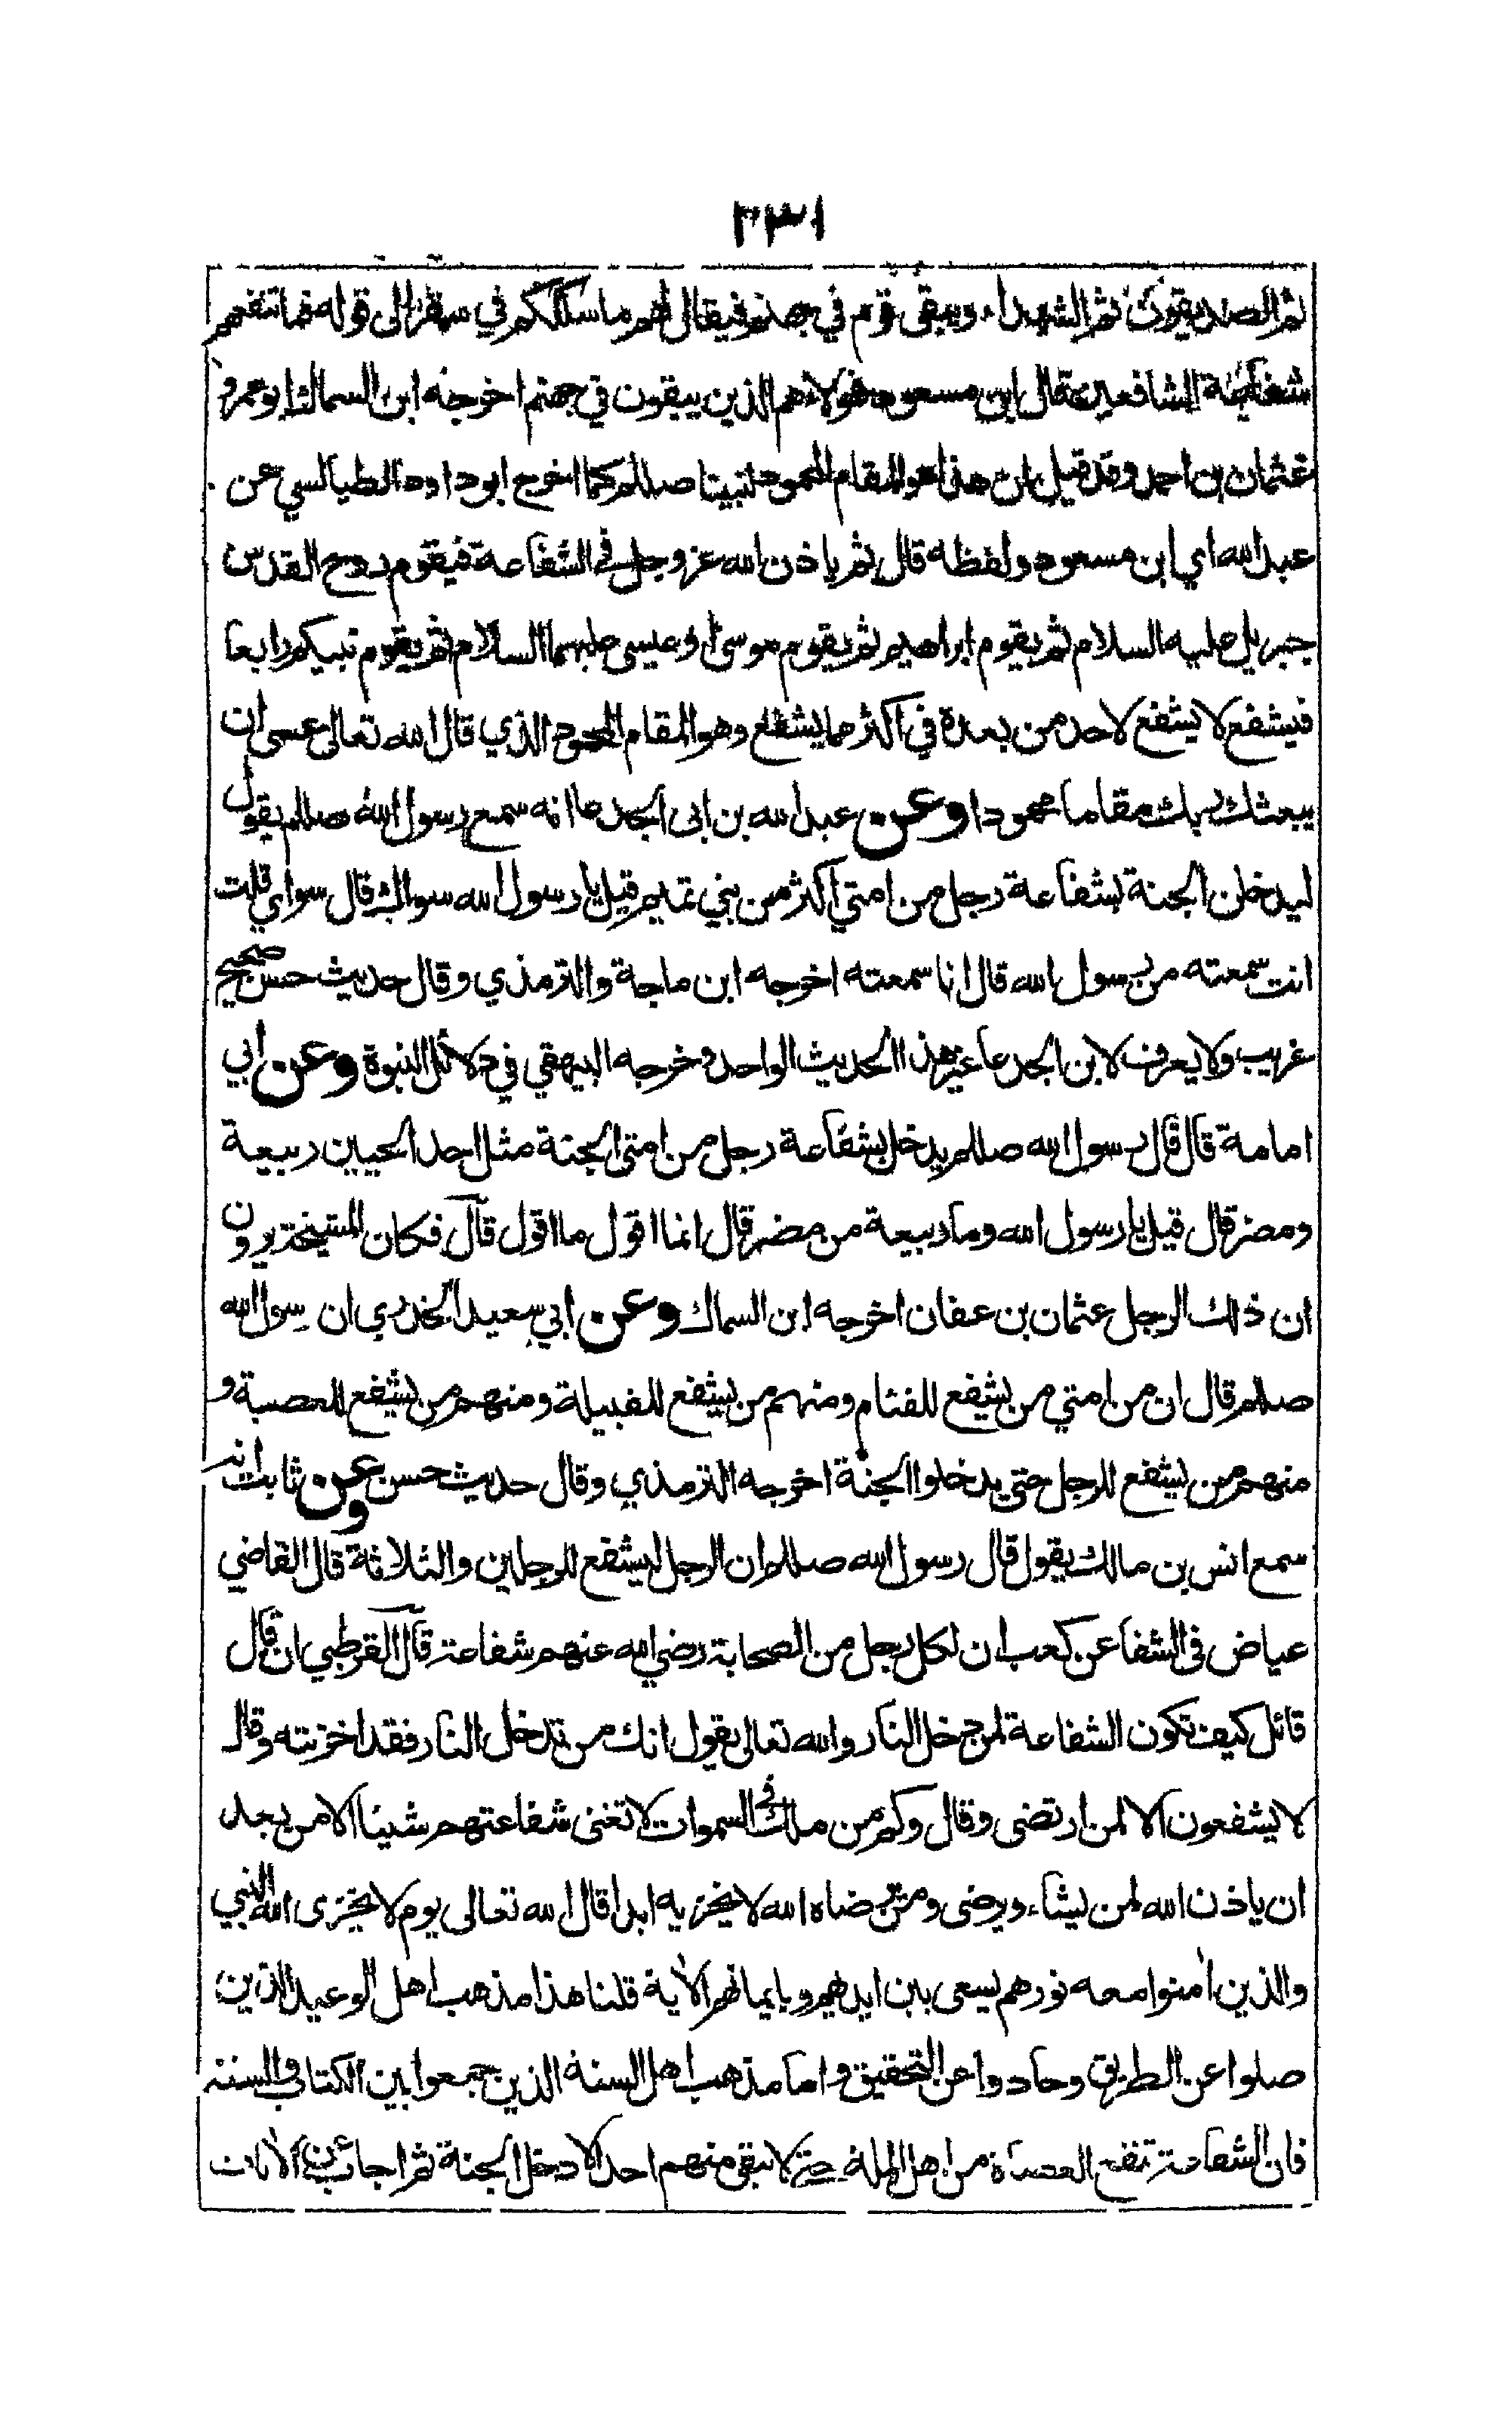 ٢٣١
ثم الصديقون ثم الشهداء ويبقى قوم في جهنم فيقال لهم ما سلككم في سقر الى قوله فما تنفعهم
شفاعة الشافعين قال ابن مسعود فهؤلاء هم الذين يبقون في جهنم اخرجه ابن السماك ابو عمرو
عثمان بن احمد وقد قيل ان هذا هو المقام المحمود لنبينا صللم كما اخرج ابو داود الطيالسي عن
عبد الله اي ابن مسعود ولفظه قال ثم ياذن الله عز وجل في الشفاعة فيقوم روح القدس
جبريل عليه السلام ثم يقوم ابراهيم ثم يقوم موسى او عيسى عليهما السلام ثم يقوم نبيكم رابعا
فيشفع لا يشفع لاحد من بعده في اكثر مما يشفع وهو المقام المحمود الذي قال الله تعالى عسى ان
يبعثك ربك مقاما محمودا وعن عبد الله بن ابى الجدعا انه سمع رسول الله صللم يقول
ليدخلن الجنة بشفاعة رجل من امتي اكثر من بني تميم قيل يا رسول الله سواك قال سواي قلت
انت سمعته من رسول الله قال انا سمعته اخرجه ابن ماجة والترمذي وقال حديث حسن صحيح
غريب ولا يعرف لابن الجدعا غير هذا الحديث الواحد وخرجه البيهقي في دلائل النبوة وعن ابي
امامة قال قال رسول الله صللم يدخل بشفاعة رجل من امتى الجنة مثل احد الحيين ربيعة
ومضر قال قيل يا رسول الله وما ربيعة من مضر قال انما اقول ما اقول قال فكان المشيخة يرون
ان ذلك الرجل عثمان بن عفان اخرجه ابن السماك وعن ابي سعيد الخدري ان رسول الله
صللم قال ان من امتي من يشفع للفئام ومنهم من يشفع للقبيلة ومنهم من يشفع للعصبة و
منهم من يشفع للرجل حتى يدخلوا الجنة اخرجه الترمذي وقال حديث حسن وعن ثابت انه
سمع انس بن مالك يقول قال رسول الله صللم ان الرجل ليشفع للرجلين والثلاثة قال القاضي
عياض فى الشفا عن كعب ان لكل رجل من الصحابة رضي الله عنهم شفاعة قال القرطبي ان قال
قائل كيف تكون الشفاعة لمن دخل النار والله تعالى يقول انك من تدخل النار فقد اخزيته وقال
لا يشفعون الا لمن ارتضى وقال وكم من ملك فى السموات لا تغنى شفاعتهم شيئا الا من بعد
ان ياذن الله لمن يشاء ويرضى ومن رضاه الله لا يخزيه ابدا قال الله تعالى يوم لا يخزى الله النبي
والذين امنوا معه نورهم يسعى بين ايديهم وبايمانهم الآية قلنا هذا مذهب اهل الوعيد الذين
ضلوا عن الطريق وحادوا عن التحقيق واما مذهب اهل السنة الذين جمعوا بين الكتاب والسنة
فان الشفاعة تنفع العصاة من اهل الملة حتى لا يبقى منهم احد الا دخل الجنة ثم اجاب عن الآيات